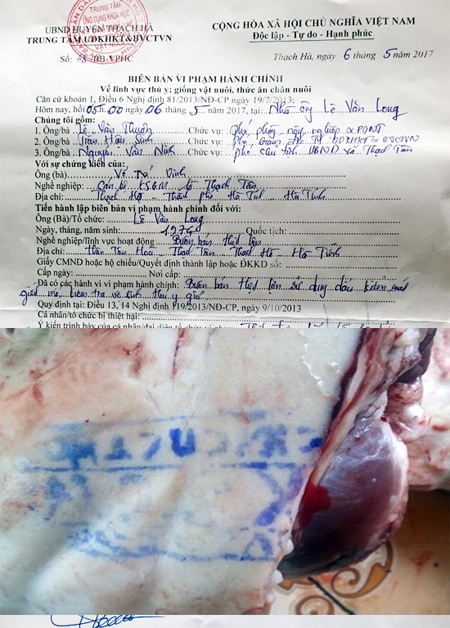 UBND HUYỆN THẠCH HÀ
TRUNG TÂM UDKHKT&BVCTVN
CỘNG HÒA XÃ HỘI CHỦ NGHĨA VIỆT NAM
Độc lập - Tự do - Hạnh phúc
TRUNG TÂM
Số: /BB-VPHC
Thạch Hà, ngày 6 tháng 5 năm 2017
BIÊN BẢN VI PHẠM HÀNH CHÍNH
Về lĩnh vực thú y; giống vật nuôi, thức ăn chăn nuôi
Căn cứ khoản 1, Điều 6 Nghị định 81/2013/NĐ-CP ngày 19/7/2013;
Hôm nay, hồi 05.00 ngày 06 tháng 5 năm 2017, tại: Nhà ông Lê Văn Long
Chúng tôi gồm:
1. Ông/bà Lê Văn Thuyên Chức vụ: phòng nông nghiệp & PTNT
2. Ông/bà Trần Hậu Sinh Chức vụ: Phó Giám đốc TT UDKHKT & BVCTVN
3. Ông/bà Nguyễn Văn Ninh Chức vụ: phó chủ tịch UBND xã Thạch Tân
Với sự chứng kiến của:
Ông (bà) Võ Tá Vinh
Nghề nghiệp: Cán bộ xã Thạch Tân
Địa chỉ: Thạch Hạ - Thành phố Hà Tĩnh - Hà Tĩnh
Tiến hành lập biên bản vi phạm hành chính đối với:
Ông (Bà)/Tổ chức: Lê Văn Long
Ngày, tháng, năm sinh: 1974 Quốc tịch:
Nghề nghiệp/lĩnh vực hoạt động Buôn bán thịt lợn
Địa chỉ: Tân Hòa, Thạch Tân - Thạch Hà - Hà Tĩnh
Số giấy CMND hoặc hộ chiếu/Quyết định thành lập hoặc ĐKKD số:
Cấp ngày: Nơi cấp:
Đã có các hành vi vi phạm hành chính: Buôn bán thịt lợn sử dụng dấu kiểm soát
giết mổ, kiểm tra vệ sinh thú y giả
Quy định tại: Điều 13, 14 Nghị định 119/2013/NĐ-CP, ngày 9/10/2013
Cá nhân/tổ chức bị thiệt hại: